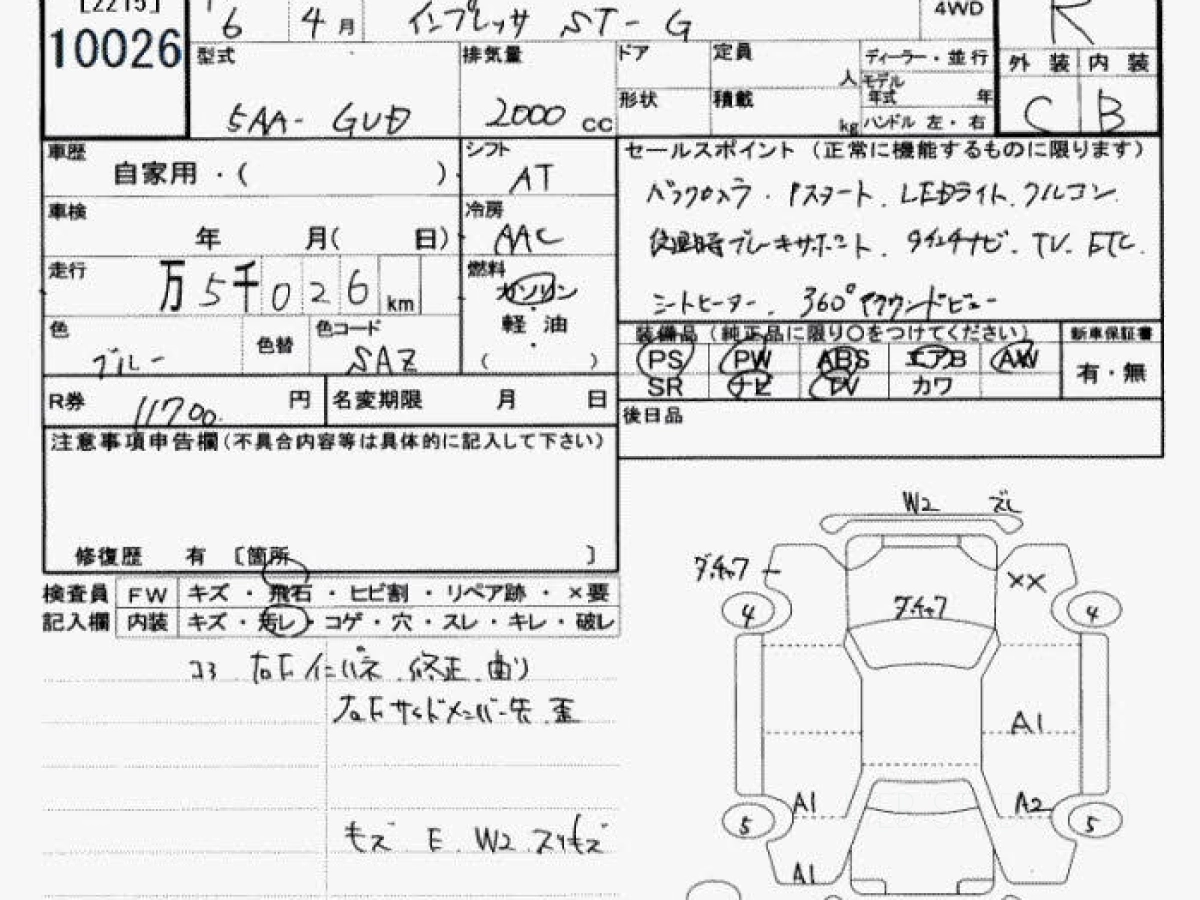 [2215]
10026
6 4月 インプレッサ ST-G 4WD R
型式 排気量 ドア 定員 人 ディーラー・並行 外装 内装
5AA-GUD 2000 cc 形状 積載 kg モデル年式 年 ハンドル 左・右 C B
車歴 自家用・( ) シフト AT
車検 年 月( 日) 冷房 AAC
走行 万5千026km 燃料 ガソリン・軽油・( )
色 ブルー 色替 色コード SAZ
R券 11700. 円 名変期限 月 日
セールスポイント(正常に機能するものに限ります)
バックカメラ. Pスタート. LEDライト. クルコン.
後退時ブレーキサポート. ナビ. TV. ETC.
シートヒーター. 360°アラウンドビュー
装備品(純正品に限り〇をつけてください) 新車保証書
PS PW ABS エアB AW 有・無
SR ナビ TV カワ
後日品
注意事項申告欄(不具合内容等は具体的に記入して下さい)
修復歴 有 〔箇所 〕
検査員 FW キズ・飛石・ヒビ割・リペア跡・×要
記入欄 内装 キズ・汚レ・コゲ・穴・スレ・キレ・破レ
コ3 右F インパネ. 修正. 曲り
右F サイドメンバー先. 歪
キズ E. W2 スリキズ
W2 ズレ
ダ.チャフ XX
4 ダ.チャフ 4
A1
A1 A2
5 5
A1